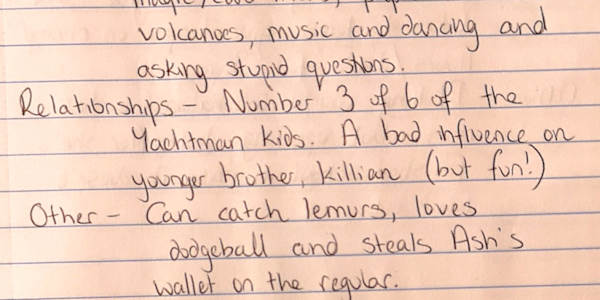 volcanoes, music and dancing and
asking stupid questions.
Relationships - Number 3 of 6 of the
Yachtman kids. A bad influence on
younger brother, Killian (but fun!)
Other - Can catch lemurs, loves
dodgeball and steals Ash's
wallet on the regular.